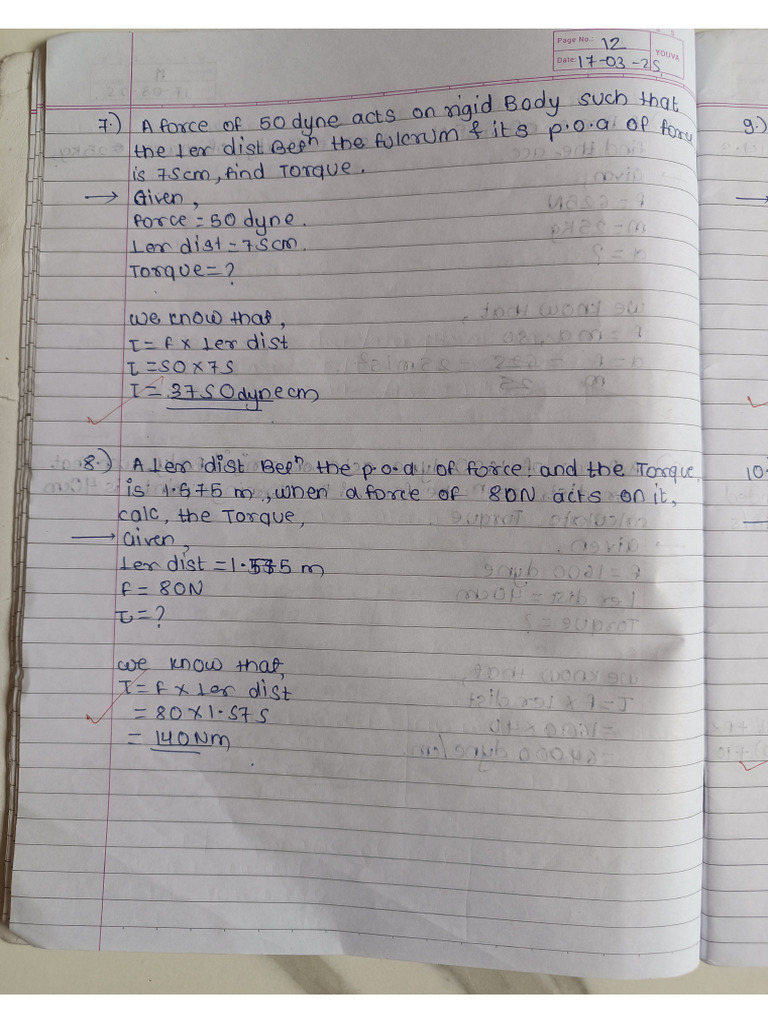 Page No.: 12
Date: 17-03-25
YOUVA
7.) A force of 50 dyne acts on rigid Body such that
the ⊥er dist Betⁿ the fulcrum & its p.o.a of force
is 75cm, find Torque.
→ Given,
force = 50 dyne.
⊥er dist = 75cm.
Torque = ?
we know that,
τ = f × ⊥er dist
τ = 50 × 75
τ = 3750 dynecm
8.) A ⊥er dist Betⁿ the p.o.a of force and the Torque
is 1.575 m, when a force of 80N acts on it,
calc, the Torque,
→ Given,
⊥er dist = 1.575 m
f = 80N
τ = ?
we know that,
τ = f × ⊥er dist
= 80 × 1.575
= 140Nm
9.)
10